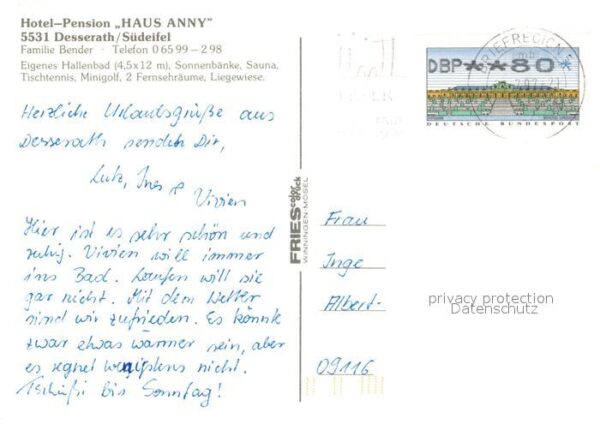 Hotel–Pension „HAUS ANNY"
5531 Desserath/Südeifel
Familie Bender · Telefon 0 65 99 – 2 98
Eigenes Hallenbad (4,5 x 12 m), Sonnenbänke, Sauna,
Tischtennis, Minigolf, 2 Fernsehräume, Liegewiese.
Herzliche Urlaubsgrüße aus
Desserath senden Dir,
Lutz, Ines &
Vivien
Hier ist es sehr schön und
ruhig. Vivien will immer
ins Bad. Laufen will sie
gar nicht. Mit dem Wetter
sind wir zufrieden. Es könnte
zwar etwas wärmer sein, aber
es regnet wenigstens nicht.
Tschüßi bis Sonntag!
FRIES color druck
WINNINGEN-MOSEL
BRIEFREGION
DBP**80
DEUTSCHE BUNDESPOST
Frau
Inge
Albert-
privacy protection
Datenschutz
09116